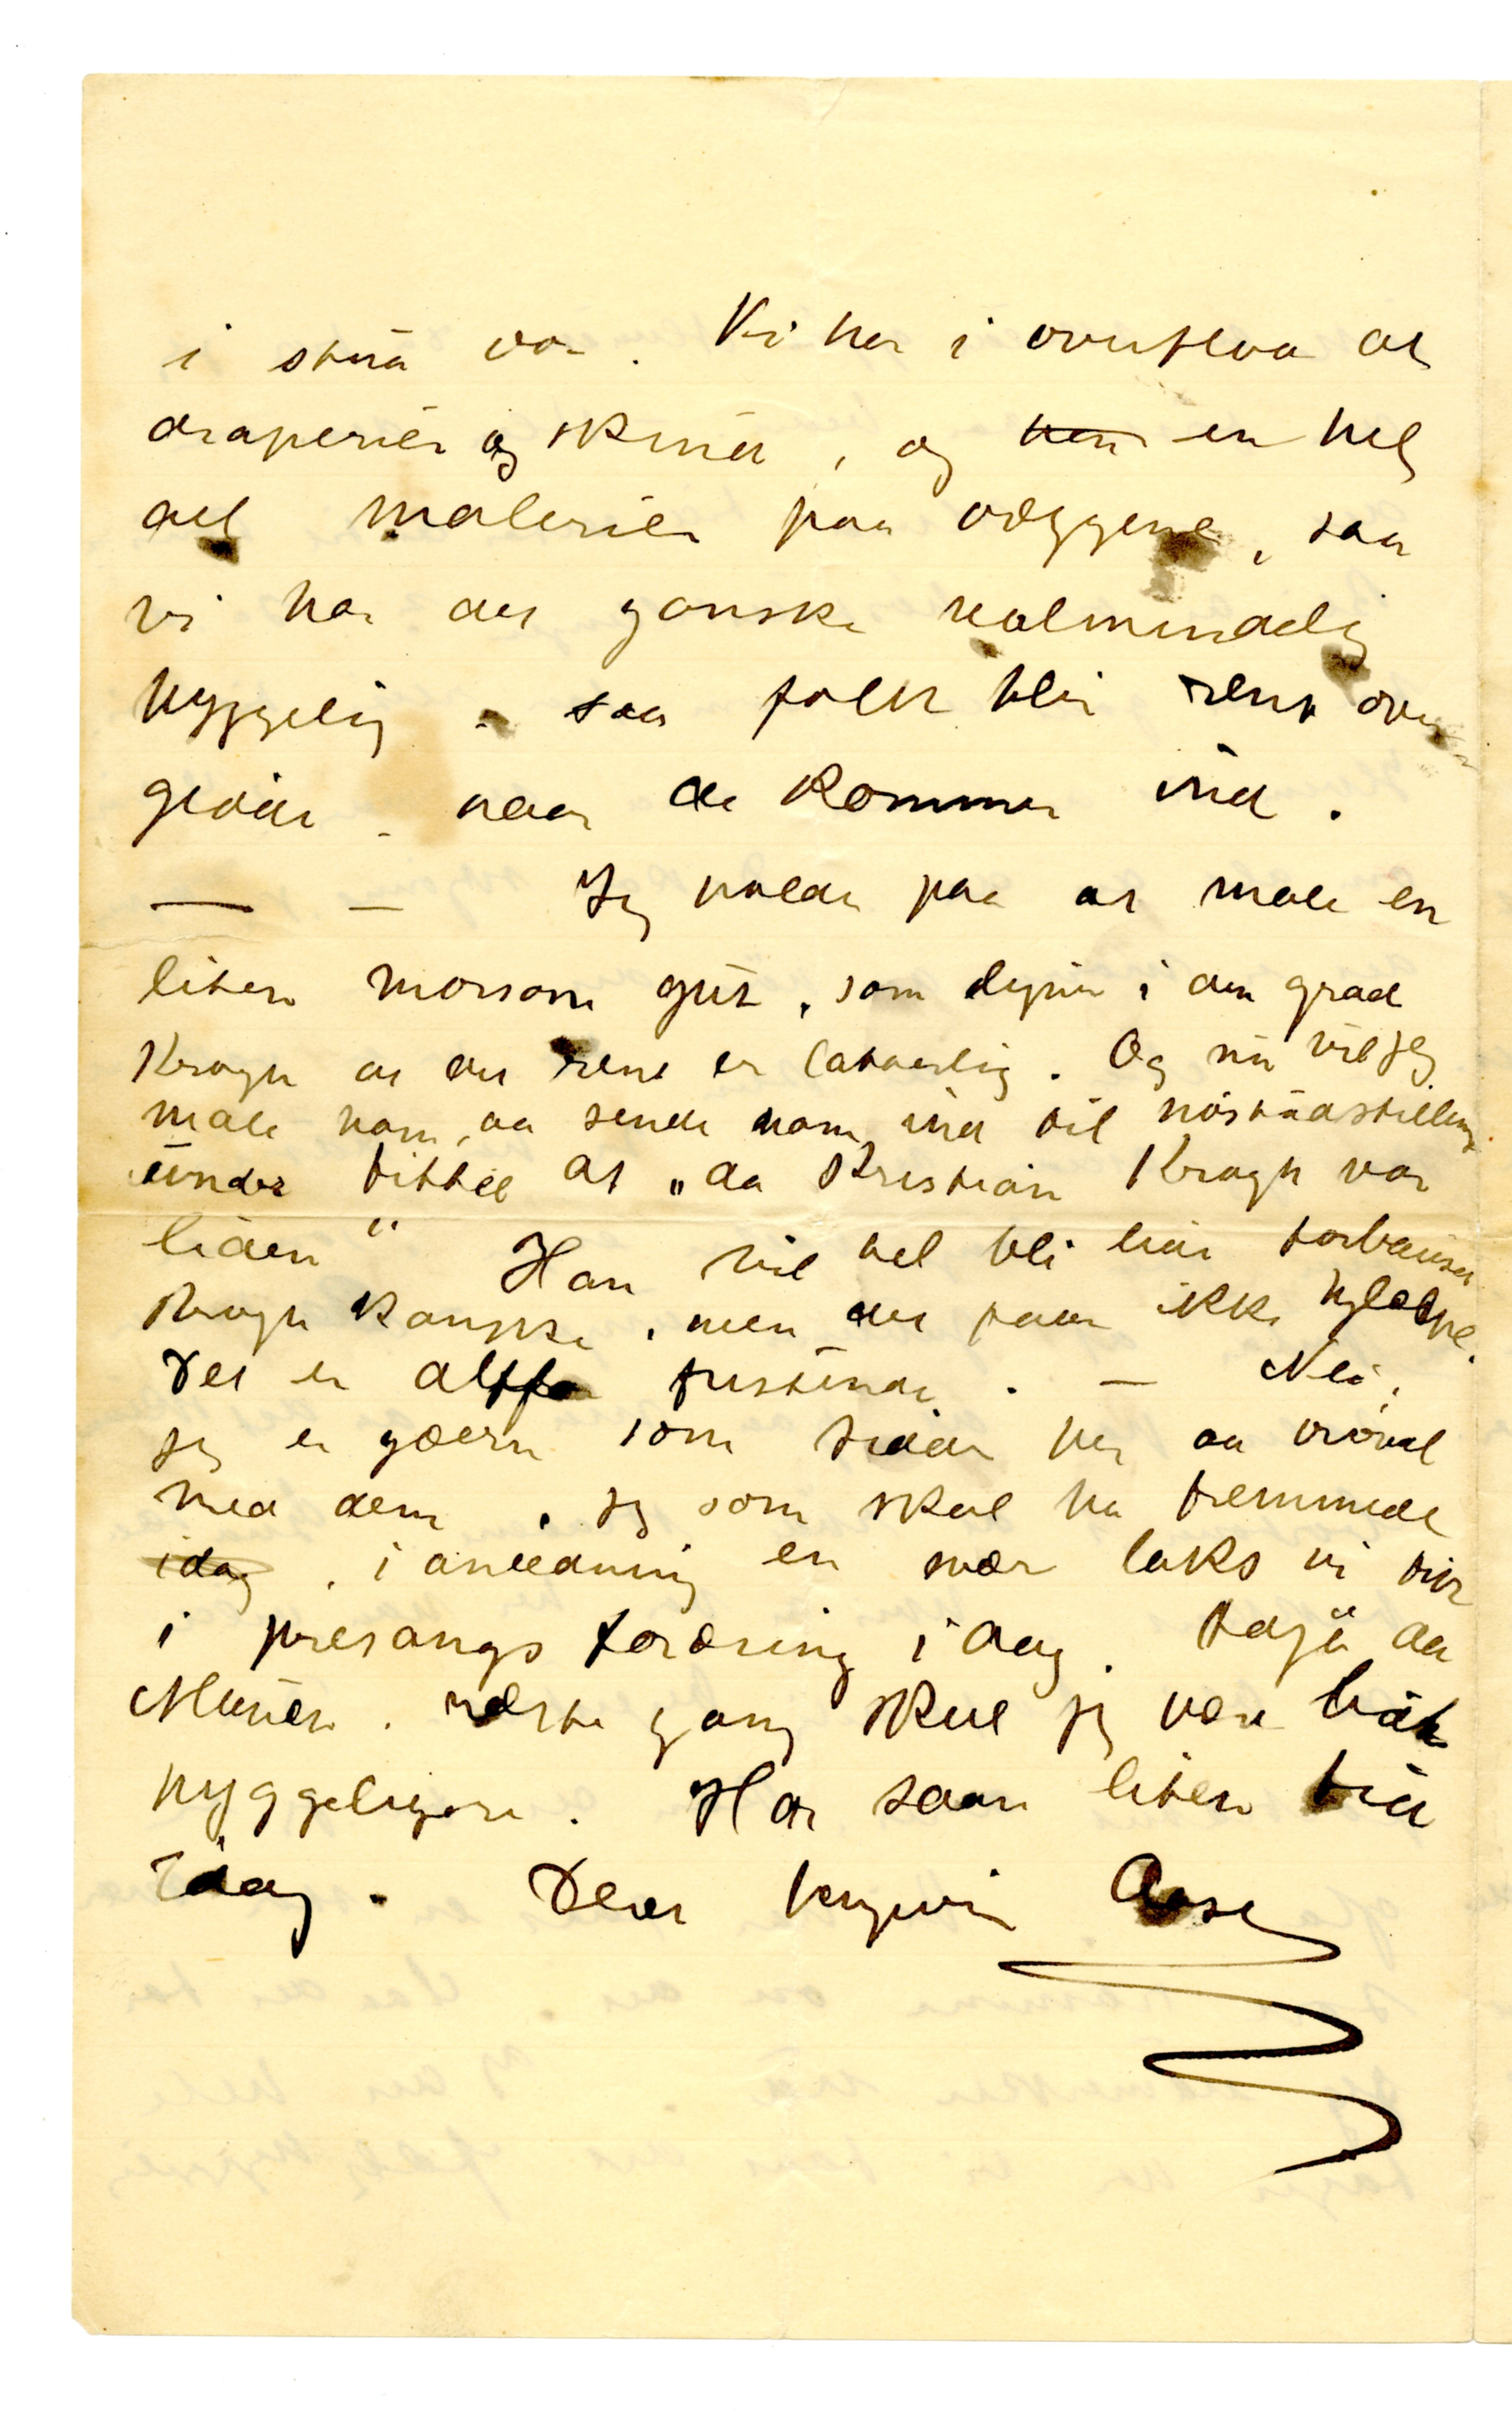 i stua vor. Vi har i overflod af
draperier og skind, og ~~hen~~ en hel
del malerier paa væggene, saa
vi har det ganske ualmindelig
hyggelig. saa folk blir rent over
givne. naar de kommer ind.
— — Jeg holder paa at male en
liten morsom gut, som ligner i den grad
Krogh at det rent er latterlig. Og nu vil jeg
male ham, aa sende ham ind til høstudstilling
under tittel af „da Kristian Krogh var
liden" Han vil vel bli lidt forbauset
Krogh kanske, men det faar ikke hjelpe.
Det er altfor fristende. — Nei,
jeg er gæern som sidder her aa vrøvel
med dem, jeg som skal ha fremmede
~~idag~~. i anledning en svær laks vi fik
i presangs foræring i dag. Adjø da
Munch. næste gang skal jeg være lidt
hyggeligere. Har saan liten tid
idag. Deres hengivne Aase